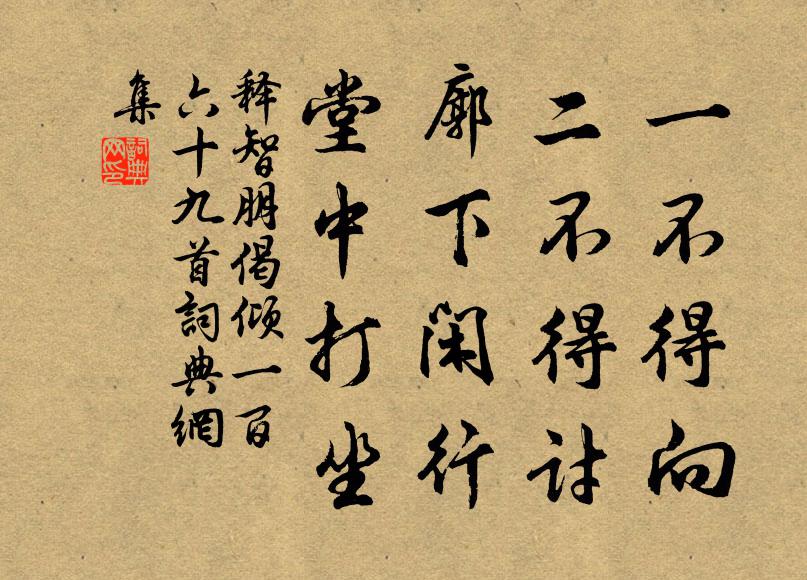 一不得向
二不得討
廓下閑行
堂中打坐
释智朋偈傾一百
六十九首詞典網
集
詞典網印